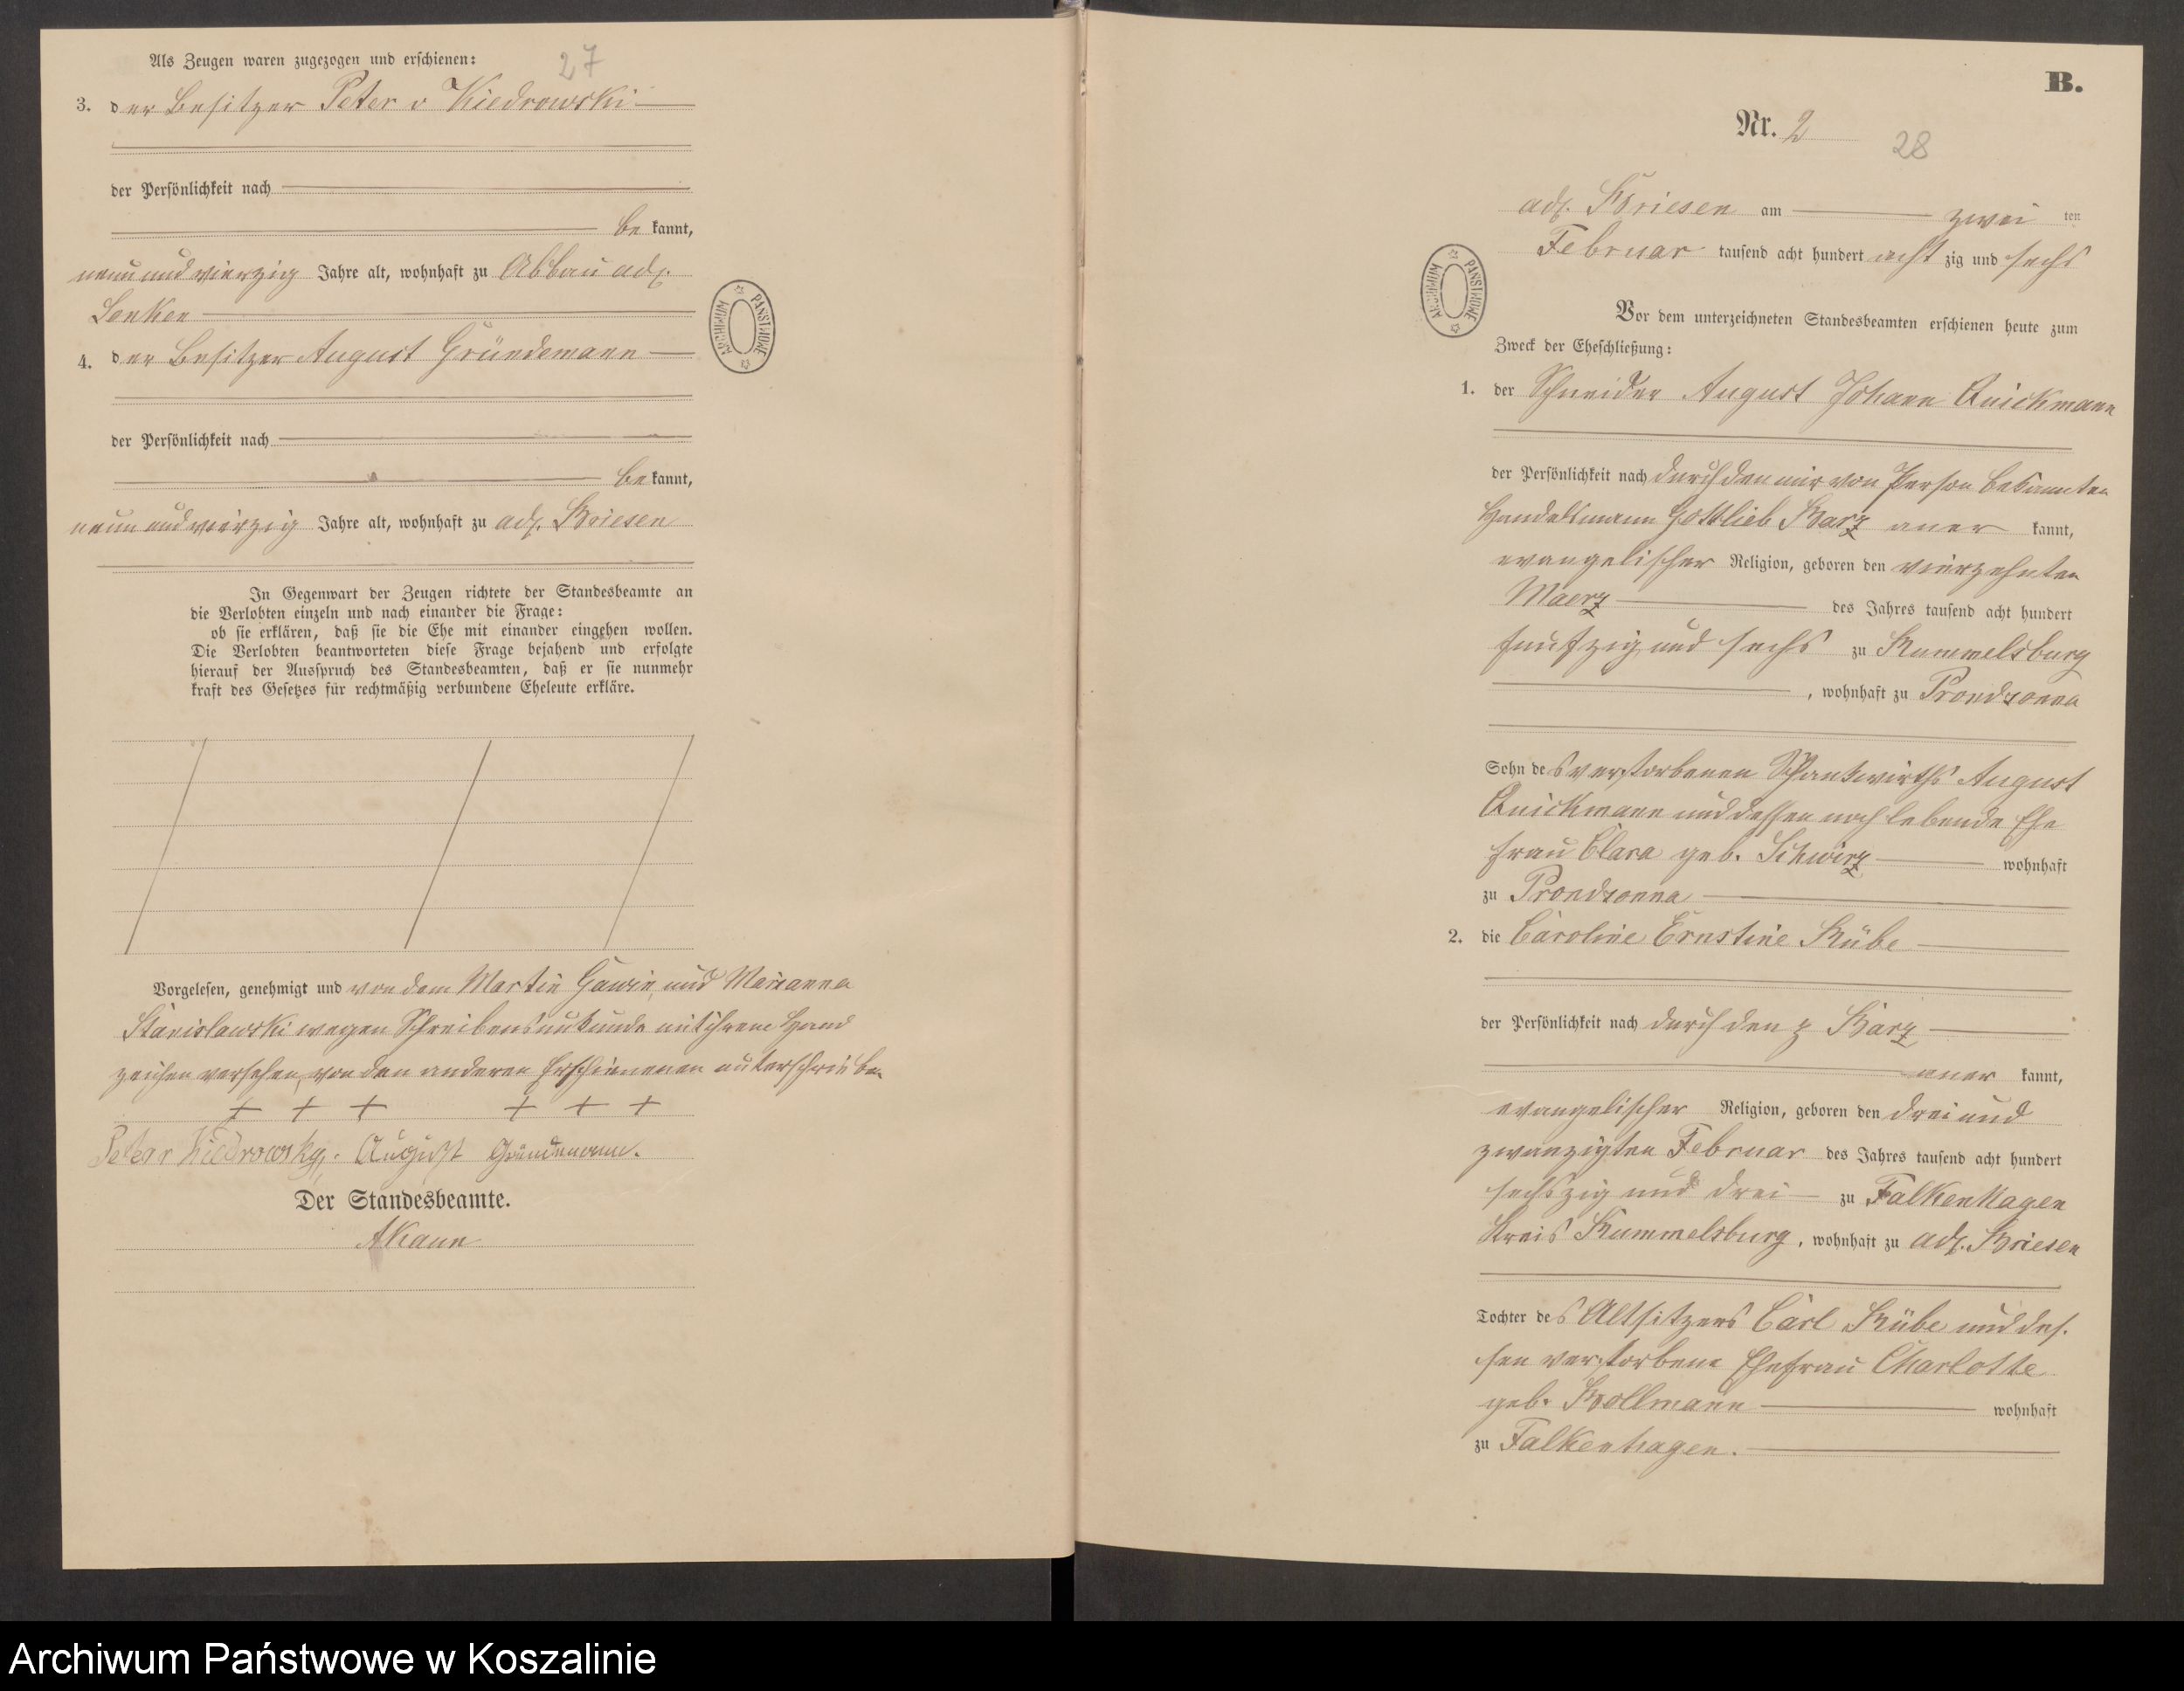 Als Zeugen waren zugezogen und erschienen:
27
3. der Besitzer Peter v Kiedrowski
der Persönlichkeit nach
be kannt,
neun und vierzig Jahre alt, wohnhaft zu Abbau adl.
Lonken
4. der Besitzer August Gründemann
der Persönlichkeit nach
be kannt,
neun und vierzig Jahre alt, wohnhaft zu adl. Briesen
In Gegenwart der Zeugen richtete der Standesbeamte an
die Verlobten einzeln und nach einander die Frage:
ob sie erklären, daß sie die Ehe mit einander eingehen wollen.
Die Verlobten beantworteten diese Frage bejahend und erfolgte
hierauf der Ausspruch des Standesbeamten, daß er sie nunmehr
kraft des Gesetzes für rechtmäßig verbundene Eheleute erkläre.
Vorgelesen, genehmigt und von dem Martin Gawin und Marianna
Stanislawski wegen Schreibensunkunde mit ihrem Hand
zeichen versehen, von den anderen Erschienenen unterschrieben
+ + + + + +
Peter Kiedrowsky. August Gründemann.
Der Standesbeamte.
AKaun
ARCHIWUM PAŃSTWOWE
B.
Nr. 2
28
adl. Briesen am zwei ten
Februar tausend acht hundert acht zig und sechs
ARCHIWUM PAŃSTWOWE
Vor dem unterzeichneten Standesbeamten erschienen heute zum
Zweck der Eheschließung:
1. der Schneider August Johann Quickmann
der Persönlichkeit nach durch den mir von Person bekannten
Handelsmann Gottlieb Barz aner kannt,
evangelischer Religion, geboren den vierzehnten
Maerz des Jahres tausend acht hundert
fünfzig und sechs zu Rummelsburg
, wohnhaft zu Prondzonna
Sohn des verstorbenen Schankwirths August
Quickmann und dessen noch lebende Ehe
frau Clara geb. Schwirz wohnhaft
zu Prondzonna
2. die Caroline Ernstine Rübe
der Persönlichkeit nach durch den p Barz
aner kannt,
evangelischer Religion, geboren den drei und
zwanzigten Februar des Jahres tausend acht hundert
sechszig und drei zu Falkenhagen
Kreis Rummelsburg, wohnhaft zu adl. Briesen
Tochter des Altsitzers Carl Rübe und des-
sen verstorbene Ehefrau Charlotte
geb. Bollmann wohnhaft
zu Falkenhagen.
Archiwum Państwowe w Koszalinie